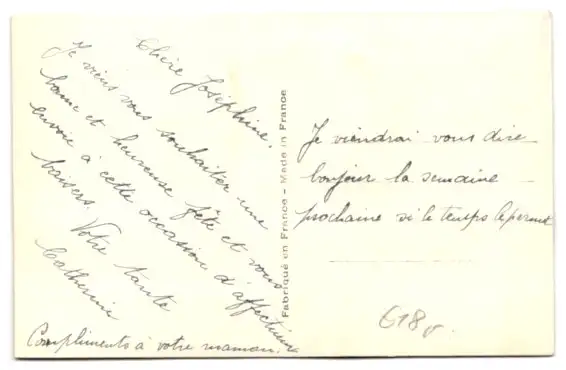 Chère Joséphine.
Je viens vous souhaiter une
bonne et heureuse fête et vous
envoie à cette occasion d'affectueux
baisers. Votre tante
Catherine
Compliments à votre maman.
Fabriqué en France - Made in France
Je viendrai vous dire
bonjour la semaine
prochaine si le temps le permet
618